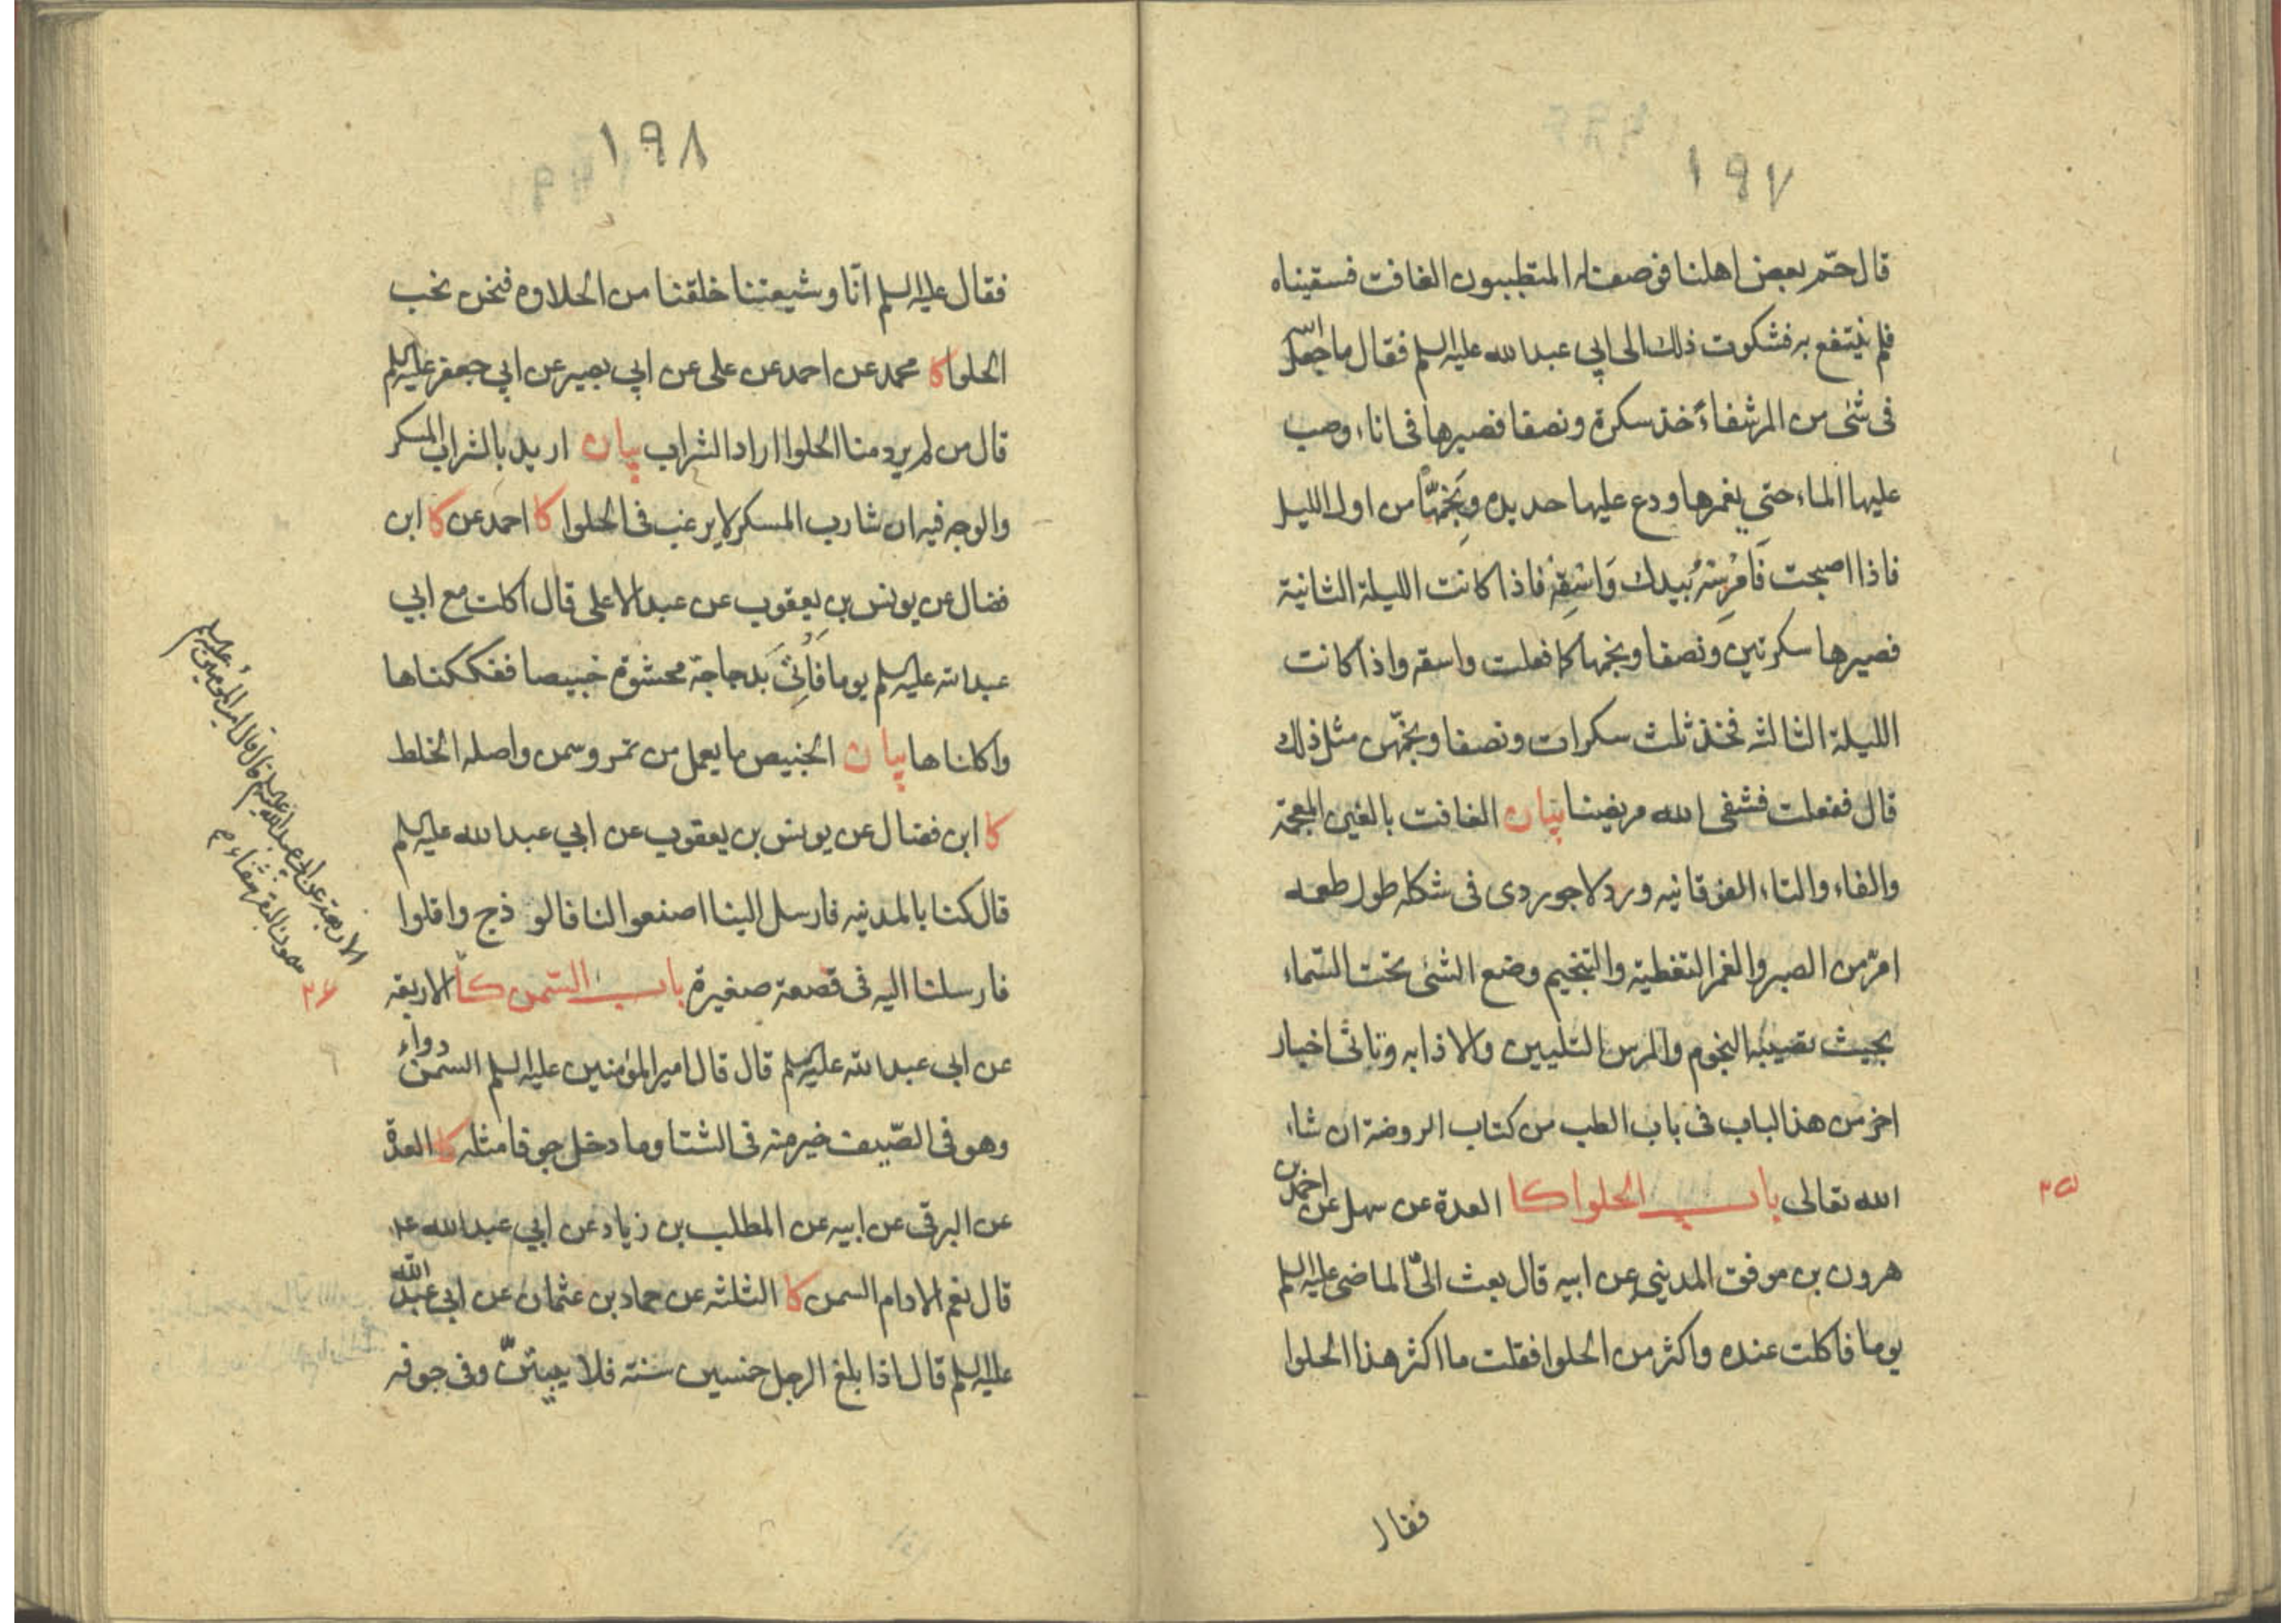 ١٩٧
قال حمّ بعض اهلنا فوصف له المتطببون الغافت فسقيناه
فلم ينتفع به فشكوت ذلك الى ابي عبد الله عليه السلم فقال ما جعل الله
فى شئ من المر شفاء خذ سكرة ونصفا فصيرها فى اناء وصب
عليها الماء حتى يغمرها ودع عليها حديدة ونجّمها من اول الليل
فاذا اصبحت فامرسه بيدك واسقه فاذا كانت الليلة الثانية
فصيرها سكرتين ونصفا ونجمها كما فعلت واسقه واذا كانت
الليلة الثالثه فخذ ثلث سكرات ونصفا ونجّمهن مثل ذلك
قال ففعلت فشفى الله مريضنا بيان الغافت بالغين المعجمة
والفاء والتاء الفوقانيه ورد لاجوردى فى شكله طول طعمه
امرّ من الصبر والغمر التغطية والتنجيم وضع الشئ تحت السّماء
بحيث تصيبه النجوم والمرس التليين والاذابه وتاتى اخبار
اخر من هذا الباب فى باب الطب من كتاب الروضة ان شاء
الله تعالى باب الحلوا كا العدة عن سهل عن احمد بن
٢٥
هرون بن موفق المديني عن ابيه قال بعث الىّ الماضى عليه السلم
يوما فاكلت عنده واكثر من الحلوا فقلت ما اكثر هذا الحلوا
فقال
١٩٨
فقال عليه السلم انّا وشيعتنا خلقنا من الحلاوه فنحن نحب
الحلوا كا محمد عن احمد عن على عن ابي بصير عن ابي جعفر عليه السلم
قال من لم يرد منا الحلوا اراد الشراب بيان اريد بالشراب المسكر
والوجه فيه ان شارب المسكر لا يرغب فى الحلوا كا احمد عن كا ابن
فضال عن يونس بن يعقوب عن عبد الاعلى قال اكلت مع ابي
عبد الله عليه السلم يوما فاُتِىَ بدجاجة محشوة خبيصا ففككناها
واكلناها بيان الخبيص ما يعمل من تمر وسمن واصله الخلط
كا ابن فضال عن يونس بن يعقوب عن ابي عبد الله عليه السلم
قال كنا بالمدنيه فارسل الينا اصنعوا لنا فالوذج واقلوا
فارسلنا اليه فى قصعة صغيرة باب السّمن كا الاربعة
٢٦
عن ابي عبد الله عليه السلم قال قال امير المؤمنين عليه السلم السمن دواء
وهو فى الصّيف خير منه فى الشتا وما دخل جوفا مثله كا العدة
عن البرقى عن ابيه عن المطلب بن زياد عن ابي عبد الله ع
قال نعم الادام السمن كا الثلثه عن حماد بن عثمان عن ابي عبد الله
عليه السلم قال اذا بلغ الرجل خمسين سنة فلا يبيتنّ وفى جوفه
الاربعة عن ابي عبد الله عليه السلم قال قال امير المؤمنين عليه السلم
سمون البقر شفاء م